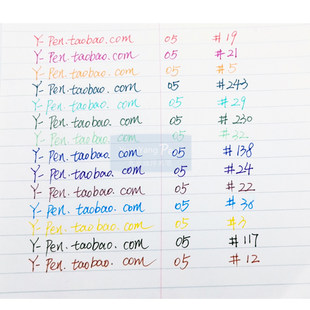 Y-Pen.taobao.com 05 #19
Y-Pen.taobao.com 05 #21
Y-Pen.taobao.com 05 #5
Y-Pen.taobao.com 05 #243
Y-Pen.taobao.com 05 #29
Y-Pen.taobao.com 05 #230
Y-Pen.taobao.com 05 #32
Y-Pen.taobao.com 05 #138
Y-Pen.taobao.com 05 #24
Y-Pen.taobao.com 05 #22
Y-Pen.taobao.com 05 #36
Y-Pen.taobao.com 05 #3
Y-Pen.taobao.com 05 #117
Y-Pen.taobao.com 05 #12